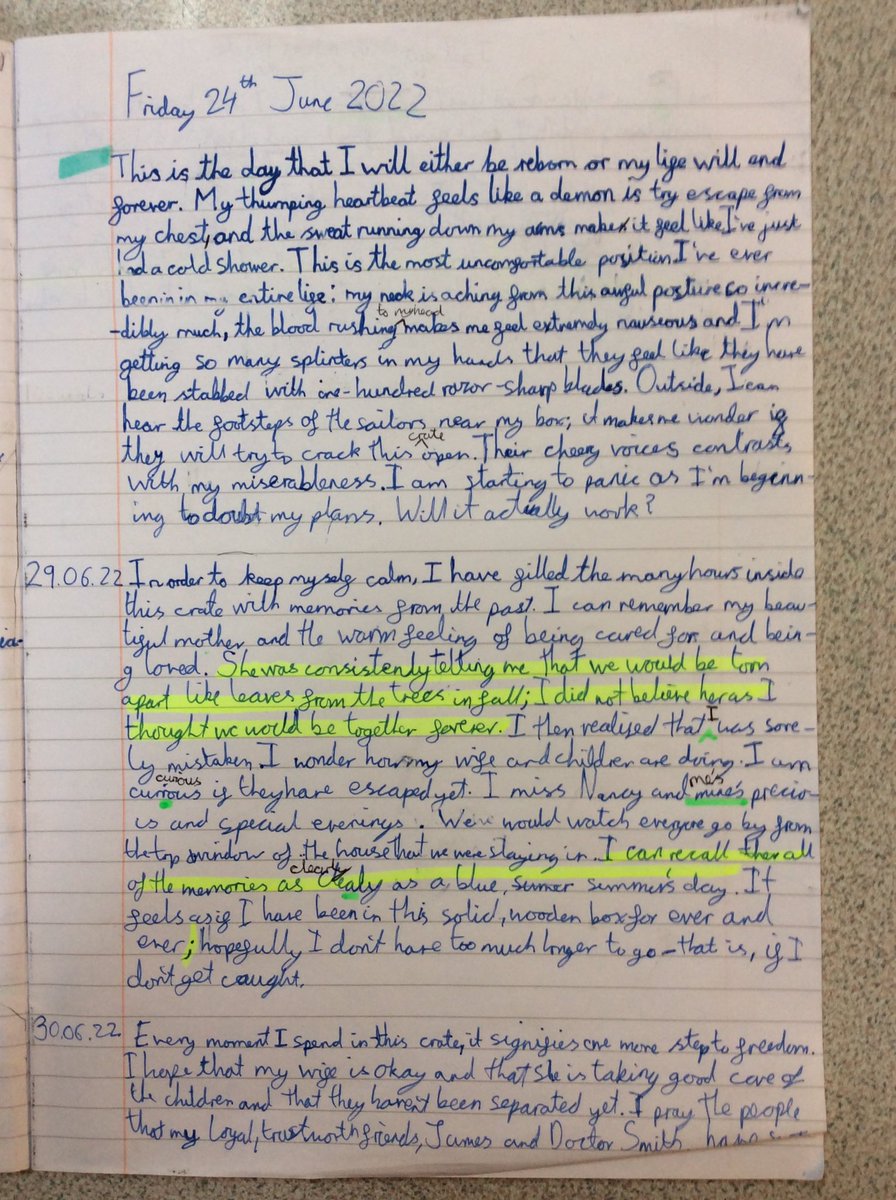 Friday 24th June 2022
This is the day that I will either be reborn or my life will end
forever. My thumping heartbeat feels like a demon is try escape from
my chest, and the sweat running down my arms makes it feel like I've just
had a cold shower. This is the most uncomfortable position I've ever
been in in my entire life: my neck is aching from this awful posture so incre-
to my head
-dibly much, the blood rushing makes me feel extremely nauseous and I'm
getting so many splinters in my hands that they feel like they have
been stabbed with one-hundred razor-sharp blades. Outside, I can
hear the footsteps of the sailors near my box; it makes me wonder if
crate
they will try to crack this open. Their cheery voices contrasts
with my miserableness. I am starting to panic as I'm beginn-
ing to doubt my plans. Will it actually work?
29.06.22 In order to keep myself calm, I have filled the many hours inside
this crate with memories from the past. I can remember my beau-
tiful mother and the warm feeling of being cared for and bein-
g loved. She was consistently telling me that we would be torn
apart like leaves from the trees in fall; I did not believe her as I
thought we would be together forever. I then realised that I was sore-
ly mistaken. I wonder how my wife and children are doing. I am
curious me's
currous if they have escaped yet. I miss Nancy and mine's precio-
is and special evenings. We would watch everyone go by from
the top window of the house that we were staying in. I can recall them all
clearly
of the memories as clealy as a blue, summer's day. It
feels as if I have been in this solid, wooden box for ever and
ever; hopefully I don't have too much longer to go - that is, if I
don't get caught.
30.06.22 Every moment I spend in this crate, it signifies one more step to freedom.
I hope that my wife is okay and that she is taking good care of
the children and that they haven't been separated yet. I pray the people
that my loyal, trustworth friends, James and Doctor Smith